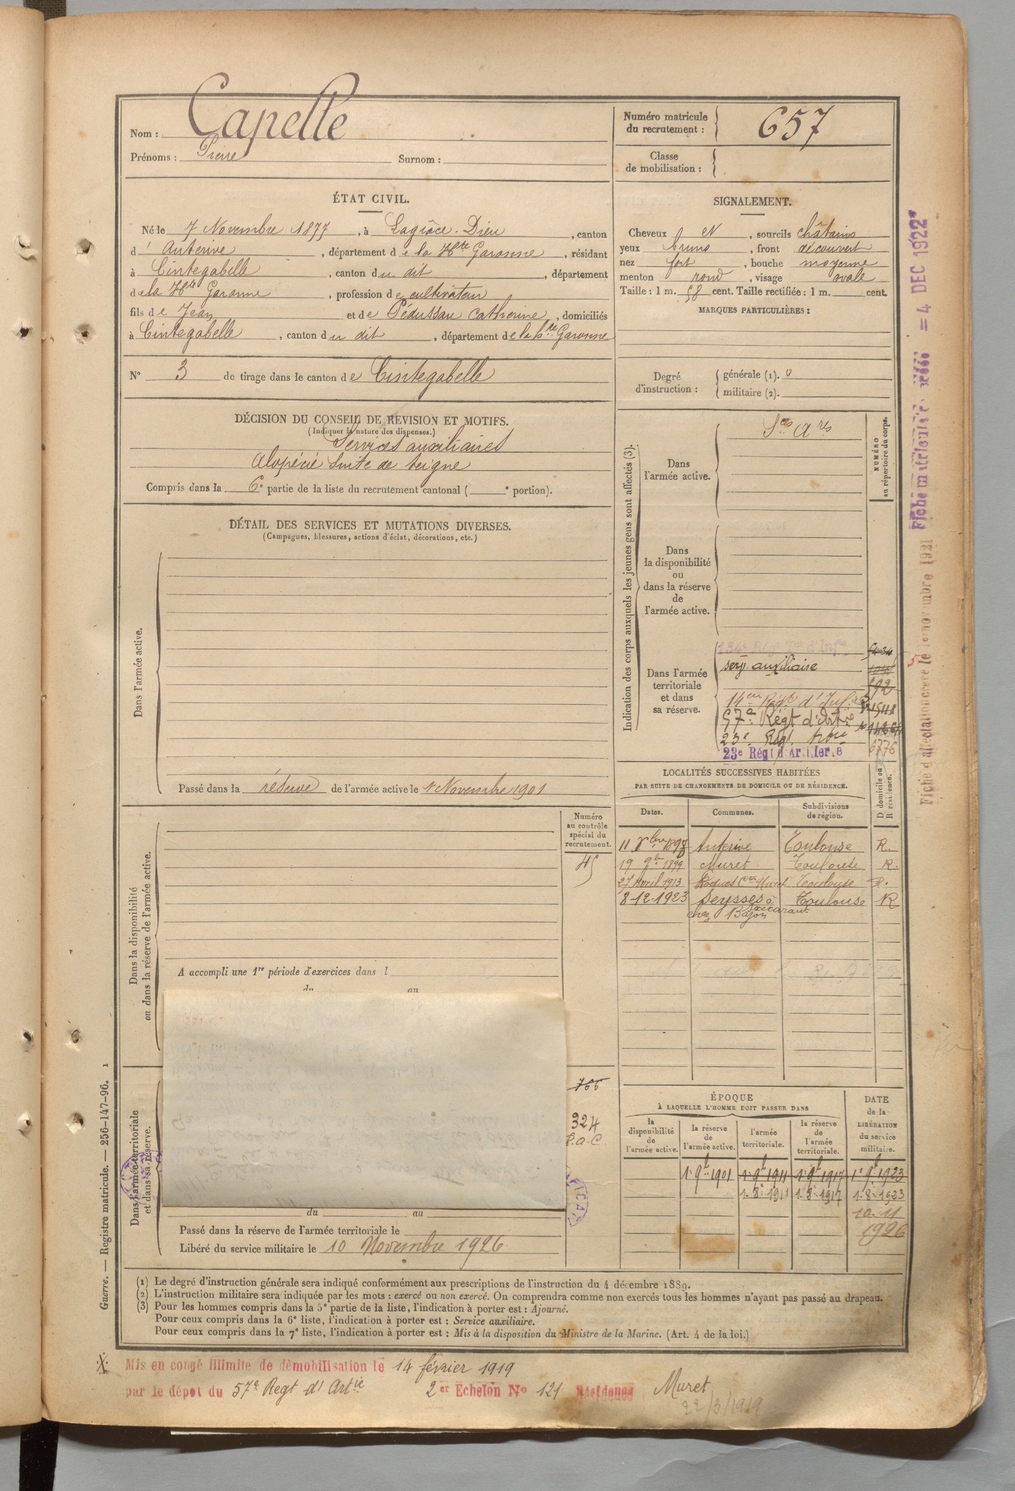 Nom : Capelle
Prénoms : Pierre Surnom :
Numéro matricule du recrutement : 657
Classe de mobilisation :
ÉTAT CIVIL.
Né le 7 Novembre 1877, à Lagrâce-Dieu, canton
d'Auterive, département de la Hte Garonne, résidant
à Cintegabelle, canton du dit, département
de la Hte Garonne, profession de cultivateur
fils de Jean et de Pédussau Catherine, domiciliés
à Cintegabelle, canton du dit, département de la Hte Garonne
N° 3 de tirage dans le canton de Cintegabelle
SIGNALEMENT.
Cheveux N, sourcils châtains
yeux bruns, front découvert
nez fort, bouche moyenne
menton rond, visage ovale
Taille : 1 m. 58 cent. Taille rectifiée : 1 m. cent.
MARQUES PARTICULIÈRES :
Degré d'instruction : générale (1). 0
militaire (2).
DÉCISION DU CONSEIL DE RÉVISION ET MOTIFS.
(Indiquer la nature des dispenses.)
Services auxiliaires
Alopécie suite de teigne
Compris dans la 6e partie de la liste du recrutement cantonal ( e portion).
DÉTAIL DES SERVICES ET MUTATIONS DIVERSES.
(Campagnes, blessures, actions d'éclat, décorations, etc.)
Dans l'armée active.
Passé dans la réserve de l'armée active le 1er Novembre 1901
Dans la disponibilité ou dans la réserve de l'armée active.
Numéro au contrôle spécial du recrutement.
45
A accompli une 1re période d'exercices dans l
du au
Dans l'armée territoriale et dans sa réserve.
766
324
P.a.C
du au
Passé dans la réserve de l'armée territoriale le
Libéré du service militaire le 10 Novembre 1926
Indication des corps auxquels les jeunes gens sont affectés (3).
NUMÉRO au répertoire du corps.
Dans l'armée active.
Dans la disponibilité ou dans la réserve de l'armée active.
Dans l'armée territoriale et dans sa réserve.
serv. auxiliaire
192
57e Régt d'Artie
23e Régt Artie
23e Régt d'Artillerie
6776
LOCALITÉS SUCCESSIVES HABITÉES
PAR SUITE DE CHANGEMENTS DE DOMICILE OU DE RÉSIDENCE.
Dates. Communes. Subdivisions de région. D domicile ou R résidence.
Auterive Toulouse R.
19 9bre 1899 Muret Toulouse R.
27 Avril 1913 Toulouse R.
8-12-1923 Seysses Toulouse R
chez Bajon
ÉPOQUE
À LAQUELLE L'HOMME DOIT PASSER DANS
la disponibilité de l'armée active. la réserve de l'armée active. l'armée territoriale. la réserve de l'armée territoriale. DATE de la LIBÉRATION du service militaire.
1er 9bre 1901 1er 9bre 1911 1er 9bre 1917 1er 9bre 1923
10-11
1926
(1) Le degré d'instruction générale sera indiqué conformément aux prescriptions de l'instruction du 4 décembre 1889.
(2) L'instruction militaire sera indiquée par les mots : exercé ou non exercé. On comprendra comme non exercés tous les hommes n'ayant pas passé au drapeau.
(3) Pour les hommes compris dans la 5e partie de la liste, l'indication à porter est : Ajourné.
Pour ceux compris dans la 6e liste, l'indication à porter est : Service auxiliaire.
Pour ceux compris dans la 7e liste, l'indication à porter est : Mis à la disposition du Ministre de la Marine. (Art. 4 de la loi.)
Mis en congé illimité de démobilisation le 14 février 1919
par le dépôt du 57e Regt d'Artie 2e Echelon No 121 Résidence Muret
22/3/1919
Guerre. — Registre matricule. — 256-147-96. 1
4 DEC 1922